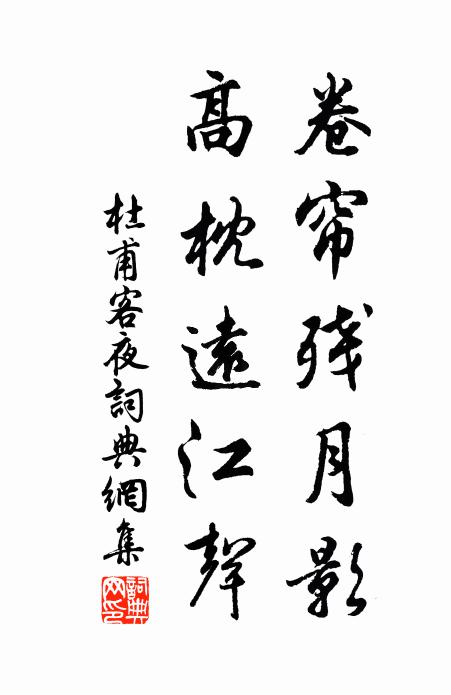 卷帘残月影
高枕遠江聲
杜甫客夜詞典網集
詞典网印